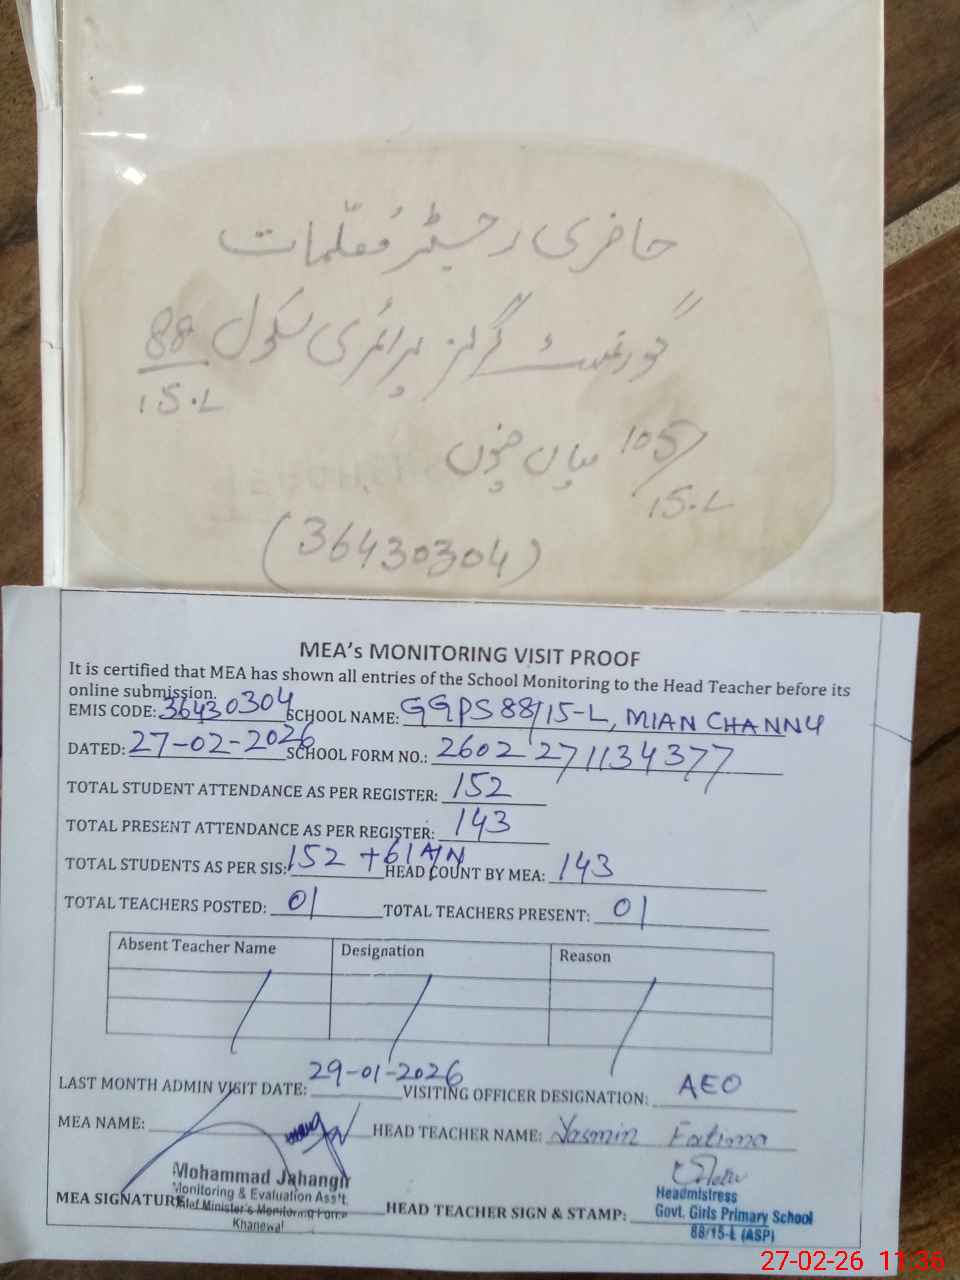 حاضری رجسٹر مُعلّمات
گورنمنٹ گرلز پرائمری سکول 88
15.L
105/ میاں چنوں
15.L
(36430304)
MEA's MONITORING VISIT PROOF
It is certified that MEA has shown all entries of the School Monitoring to the Head Teacher before its
online submission.
EMIS CODE: 36430304 SCHOOL NAME: GGPS 88/15-L, MIAN CHANNU
DATED: 27-02-2026 SCHOOL FORM NO.: 2602271134377
TOTAL STUDENT ATTENDANCE AS PER REGISTER: 152
TOTAL PRESENT ATTENDANCE AS PER REGISTER: 143
TOTAL STUDENTS AS PER SIS: 152 + 61 A/N HEAD COUNT BY MEA: 143
TOTAL TEACHERS POSTED: 01 TOTAL TEACHERS PRESENT: 01
Absent Teacher Name Designation Reason
LAST MONTH ADMIN VISIT DATE: 29-01-2026 VISITING OFFICER DESIGNATION: AEO
MEA NAME: HEAD TEACHER NAME: Yasmin Fatima
Mohammad Jahangir
Monitoring & Evaluation Ass't.
MEA SIGNATURE Chief Minister's Monitoring Force
Khanewal
HEAD TEACHER SIGN & STAMP:
Headmistress
Govt. Girls Primary School
88/15-L (ASP)
27-02-26 11:36